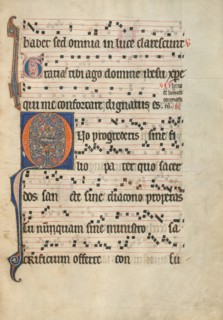 habet sed omnia in luce clarescunt
Gratias tibi ago domine ihesu xpe
qui me confortare dignatus es.
Quo progrederis sine fi
lio pa ter quo sacer
dos san cte sine diacono properas
tu nunquam sine ministro sa
crificium offerre con su